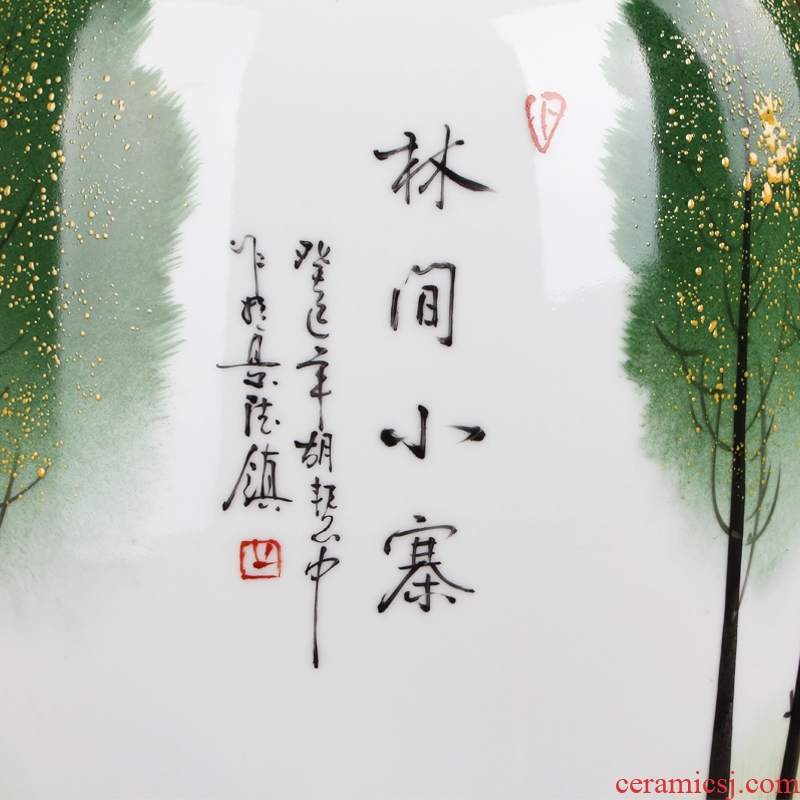 林间小寨
癸巳年胡慧中
作於景德镇
ceramicsj.com